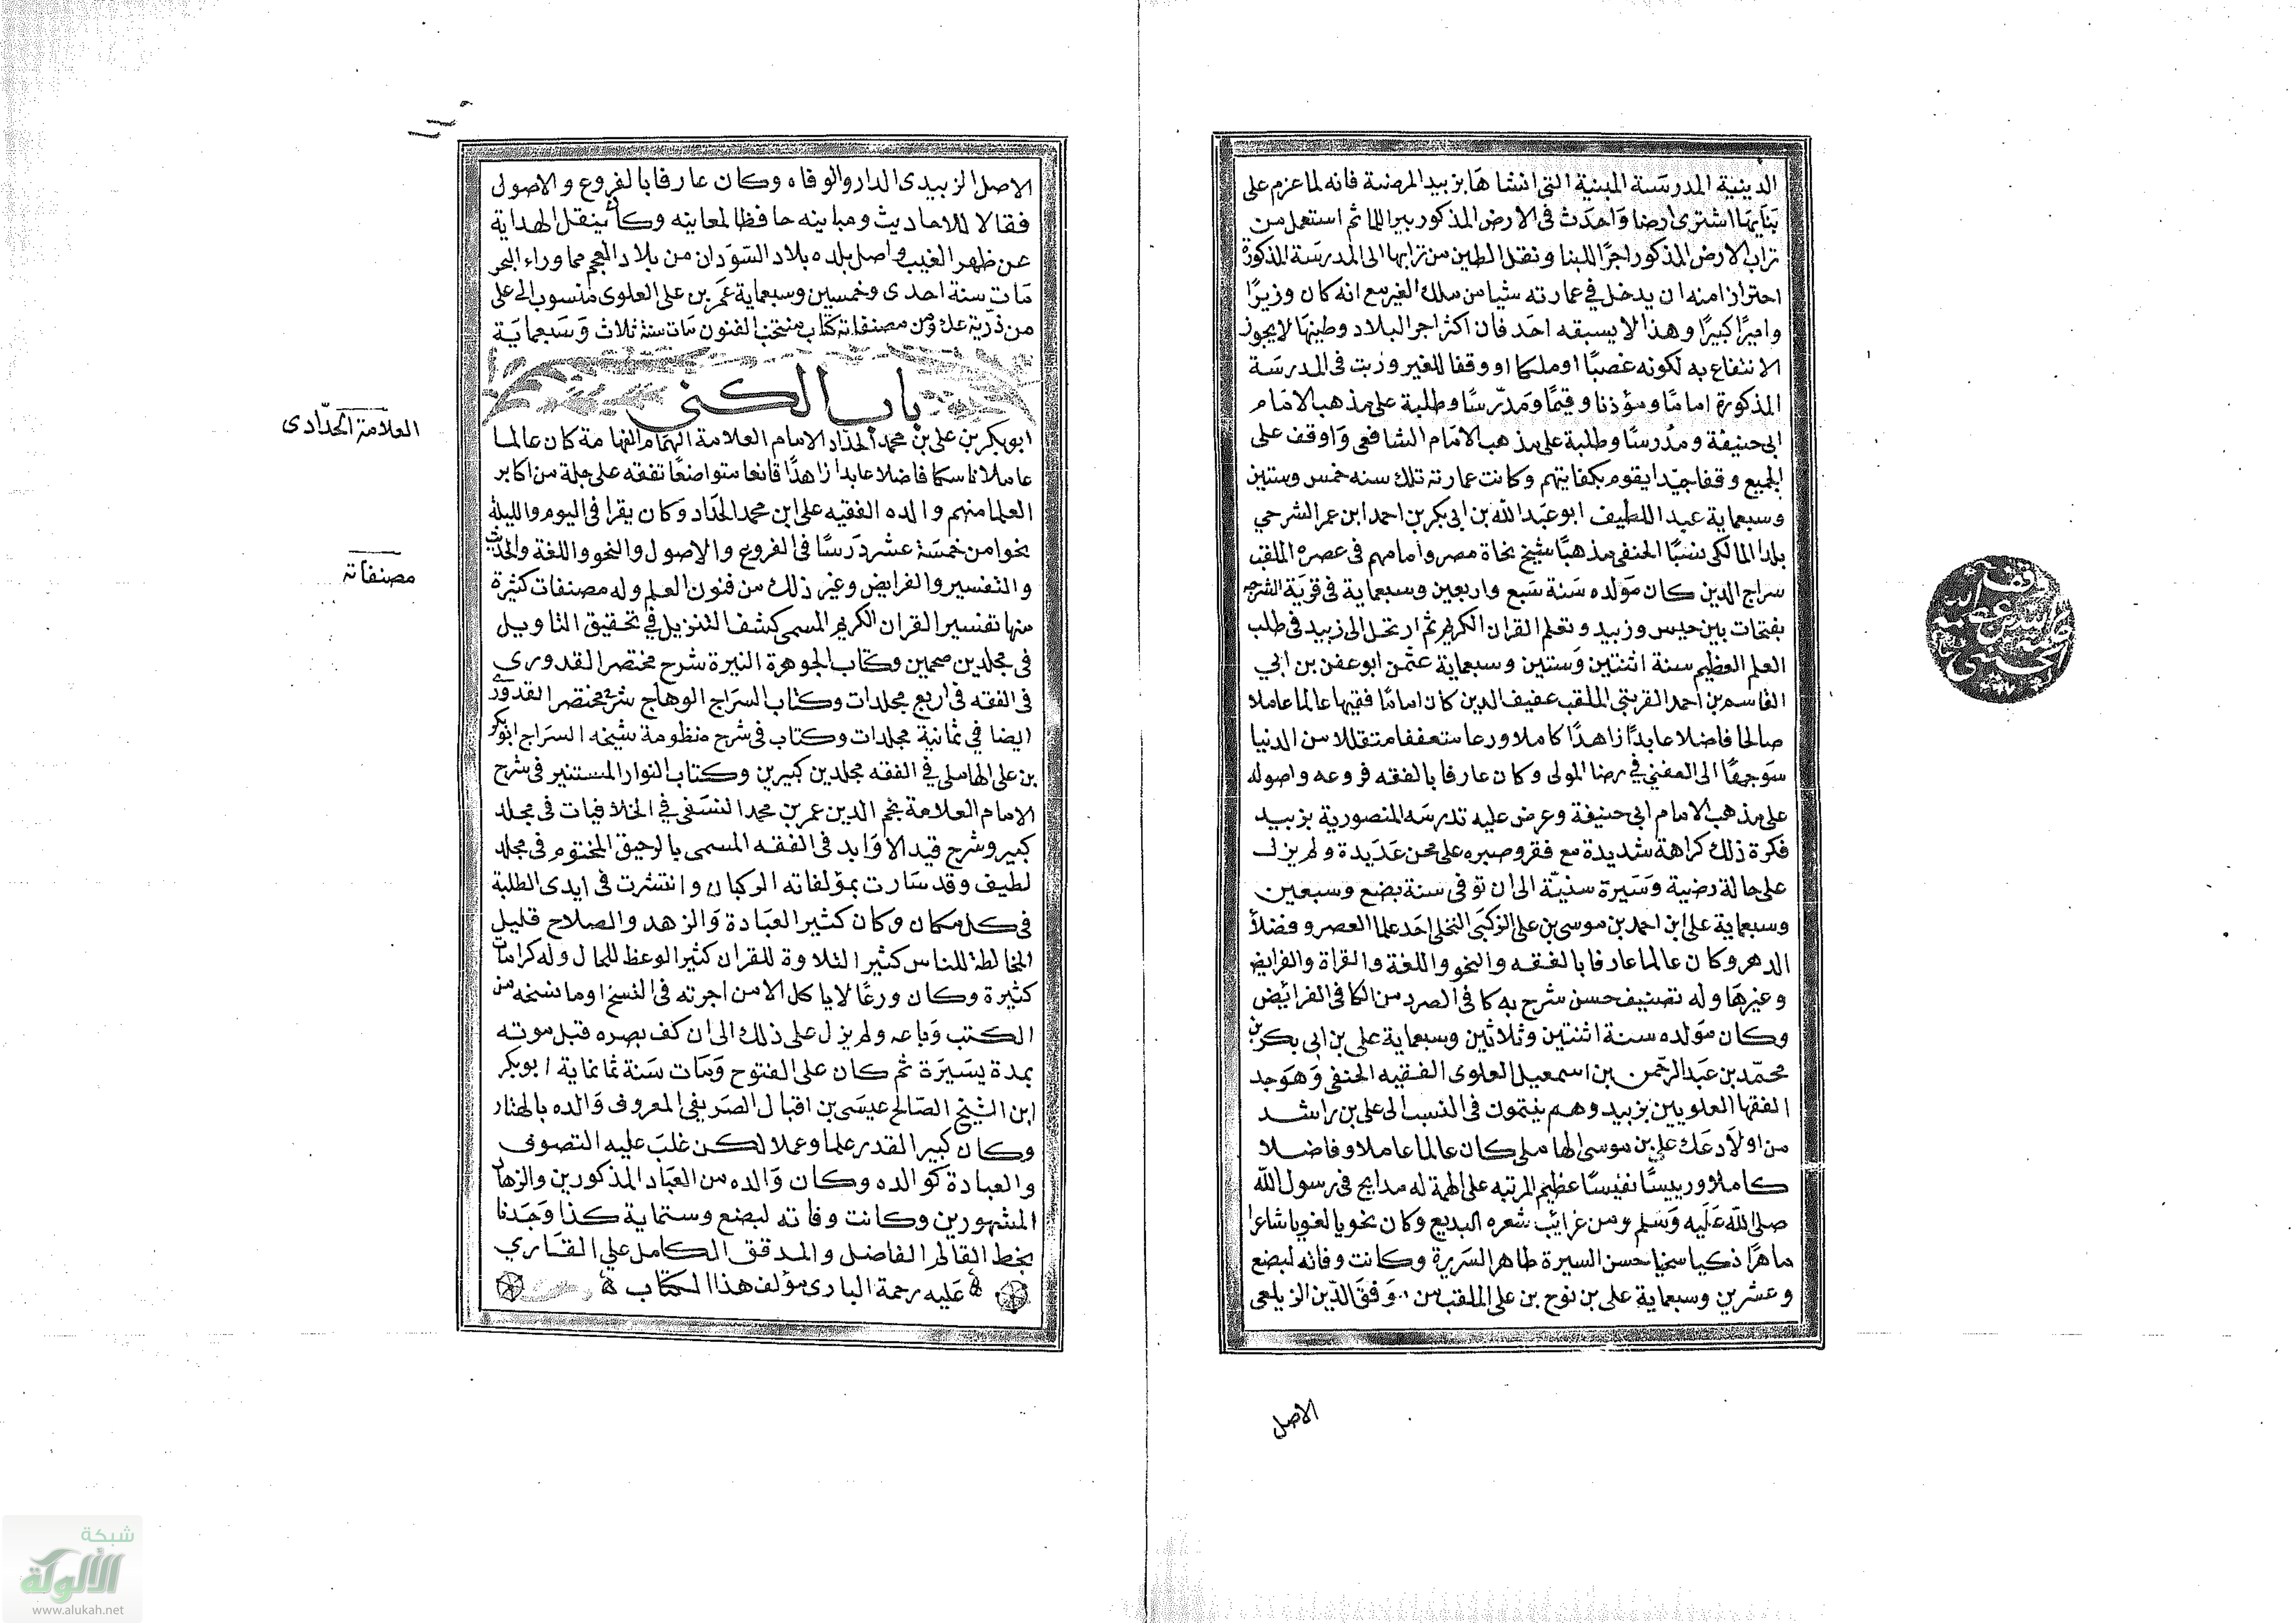 الدينية المدرسة المبنية التى انشاها بزبيد المرضية فانه لما عزم على
بنايها اشترى ارضا واحدث فى الارض المذكور بير الماثم استعمل من
تراب الارض المذكور اجرًا للبنا ونقل الطين من ترابها الى المدرسة المذكورة
احترازا منه ان يدخل فى عمارته شيا من ملك الغير مع انه كان وزيرًا
واميرًا كبيرًا وهذا لا يسبقه احد فان اكثر اجر البلاد وطينها لا يجوز
الانتفاع به لكونه غصبًا او ملكا او وقفا للغير ورتب فى المدرسة
المذكورة امامًا ومؤذنا وقيمًا ومدرّسًا وطلبة على مذهب الامام
ابى حنيفة ومدرسًا وطلبة على مذهب الامام الشافعى واوقف على
الجميع وقفا جيّدا يقوم بكفايتهم وكانت عمارته تلك سنه خمس وستين
وسبعماية عبد اللطيف ابو عبد الله بن ابى بكر بن احمد ابن عمر الشرحي
بلدا المالكى نسبًا الحنفى مذهبًا شيخ نحاة مصر وامامهم فى عصره الملقب
سراج الدين كان مولده سنة سبع واربعين وسبعماية فى قرية الشرجه
بفتحات بين حيس وزبيد وتعلم القران الكريم ثم ارتحل الى زبيد فى طلب
العلم العظيم سنة اثنتين وستين وسبعماية عثمن ابو عفن بن ابي
القاسم بن احمد القرتبى الملقب عفيف الدين كان امامًا فقيها عالما عاملا
صالحا فاضلا عابدًا زاهدًا كاملا ورعا متعففا متقللا من الدنيا
متوجهًا الى المغني في رضا المولى وكان عارفا بالفقه فروعه واصوله
على مذهب الامام ابي حنيفة وعرض عليه تدرسه المنصورية بزبيد
فكرة ذلك كراهة شديدة مع فقر وصبره على محن عديدة ولم يزل
على حالة رضية وسيرة سنيّة الى ان توفى سنة بضع وسبعين
وسبعماية على ابن احمد بن موسى بن على الركبى النخلى احد علما العصر وفضلأ
الدهر وكان عالما عارفا بالفقه والنحو واللغة والقراة والفرايض
وغيرها وله تصنيف حسن شرح به كافى الصرد من الكافى الفرائض
وكان مولده سنة اثنتين وثلاثين وسبعماية على بن ابى بكر بن
محمّد بن عبد الرحمن بن اسمعيل العلوى الفقيه الحنفى وهو جد
الفقها العلويين بزبيد وهم ينتمون فى النسب الى على بن راشد
من اولاد عك على بن موسى الهاملى كان عالما عاملا وفاضلا
كاملا ورييسًا نفيسًا عظيم المرتبه على الهمة له مدايح فى رسول الله
صلى الله عليه وسلم ومن غرائب شعره البديع وكان نحويا لغويا شاعرا
ماهرًا ذكيا سخيا حسن السيرة طاهر السريرة وكانت وفاته لبضع
وعشرين وسبعماية على بن نوح بن على الملقب موفق الدّين الزيلعى
الاصل
الاصل الزبيدى الدار والوفاه وكان عارفا بالفروع والاصول
فقالا للاحاديث ومبانيه حافظا لمعانيه وكان ينقل الهداية
عن ظهر الغيب واصل بلده بلاد السودان من بلاد العجم مما وراء البحر
مات سنة احدى وخمسين وسبعماية عمر بن على العلوى منسوب الى على
من ذرّية عك ومن مصنفاته كتاب منتخب الفنون مات سنة ثلاث وسبعماية
باب الكنى
ابو بكر بن على بن محمد الحداد الامام العلامة الهمام الفهامة كان عالما
عاملا ناسكا فاضلا عابدا زاهدًا قانعا متواضعًا تفقه على جلة من اكابر
العلما منهم والده الفقيه على ابن محمد الحداد وكان يقرا فى اليوم والليلة
نحوا من خمسة عشر درسًا فى الفروع والاصول والنحو واللغة والحديث
والتفسير والفرايض وغير ذلك من فنون العلم وله مصنفات كثيرة
منها تفسير القران الكريم المسمى كشف التنزيل في تحقيق التاويل
فى مجلدين ضخمين وكتاب الجوهرة النيرة شرح مختصر القدورى
فى الفقه فى اربع مجلدات وكتاب السراج الوهاج شرح مختصر القدورى
ايضا في ثمانية مجلدات وكتاب فى شرح منظومة شيخه السراج ابو بكر
بن على الهاملى في الفقه مجلدين كبيرين وكتاب النوار المستنير فى شرح
الامام العلامة نجم الدين عمر بن محمد النسفى في الخلافيات فى مجلد
كبير وشرح قيد الاوابد فى الفقه المسمى بالرحيق المختوم فى مجلد
لطيف وقد سارت بمؤلفاته الركبان وانتشرت فى ايدى الطلبة
فى كل مكان وكان كثير العبادة والزهد والصلاح قليل
المخالطة للناس كثير التلاوة للقران كثير الوعظ للمال وله كرامات
كثيرة وكان ورعًا لا ياكل الا من اجرته فى النسخ او ما نسخه من
الكتب وباعه ولم يزل على ذلك الى ان كف بصره قبل موته
بمدة يسيرة ثم كان على الفتوح ومات سنة ثمانماية ابو بكر
ابن الشيخ الصالح عيسى بن اقبال الصريفى المعروف والده بالهتار
وكان كبير القدر علما وعملا لكن غلب عليه التصوف
والعبادة كوالده وكان والده من العباد المذكورين والزهاد
المشهورين وكانت وفاته لبضع وستماية كذا وجدنا
بخط القالم الفاضل والمدقق الكامل على القارى
عليه رحمة البارى مؤلف هذا الكتاب
العلامة الحدّادى
مصنفاته
شبكة
الألوكة
www.alukah.net